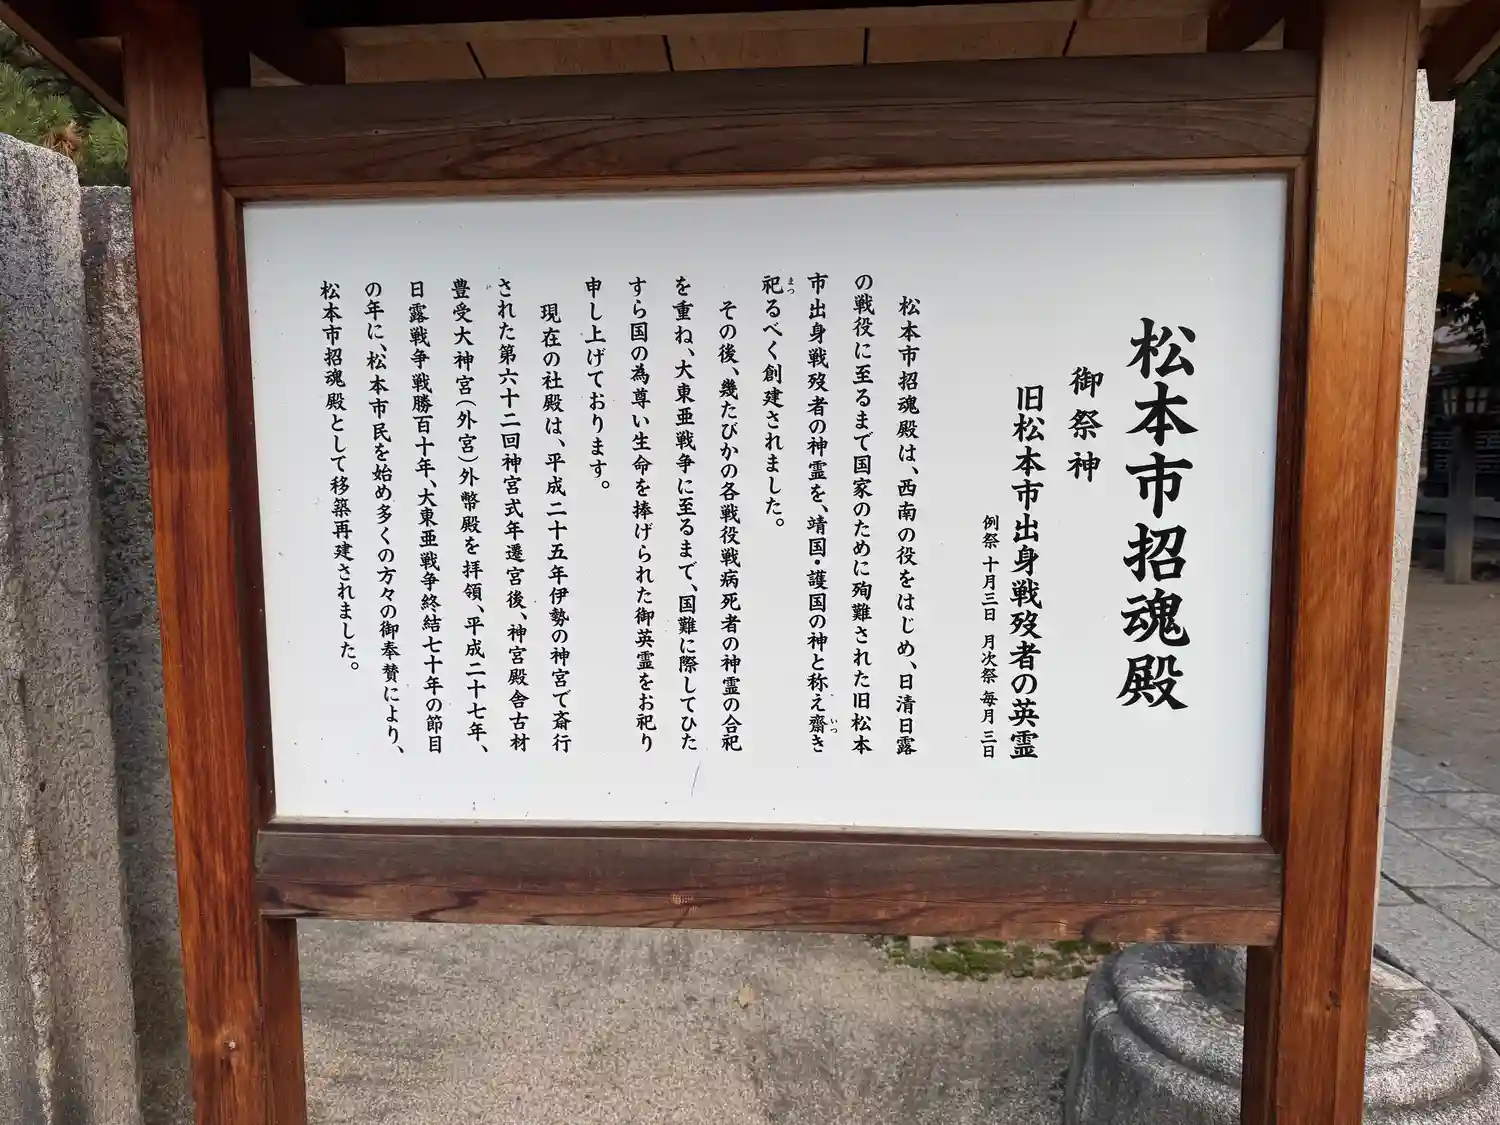 松本市招魂殿
御祭神
旧松本市出身戦歿者の英霊
例祭 十月三日 月次祭 毎月 三日
松本市招魂殿は、西南の役をはじめ、日清日露
の戦役に至るまで国家のために殉難された旧松本
市出身戦歿者の神霊を、靖国・護国の神と称え齋き
いつ
祀るべく創建されました。
まつ
その後、幾たびかの各戦役戦病死者の神霊の合祀
を重ね、大東亜戦争に至るまで、国難に際してひた
すら国の為尊い生命を捧げられた御英霊をお祀り
申し上げております。
現在の社殿は、平成二十五年伊勢の神宮で斎行
された第六十二回神宮式年遷宮後、神宮殿舎古材
豊受大神宮(外宮)外幣殿を拝領、平成二十七年、
日露戦争戦勝百十年、大東亜戦争終結七十年の節目
の年に、松本市民を始め多くの方々の御奉賛により、
松本市招魂殿として移築再建されました。